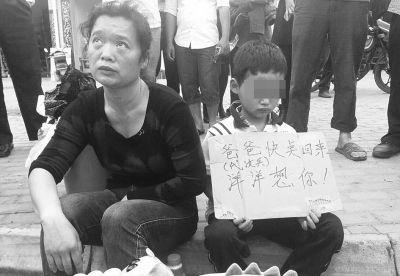 爸爸快点回来
洋洋想你!